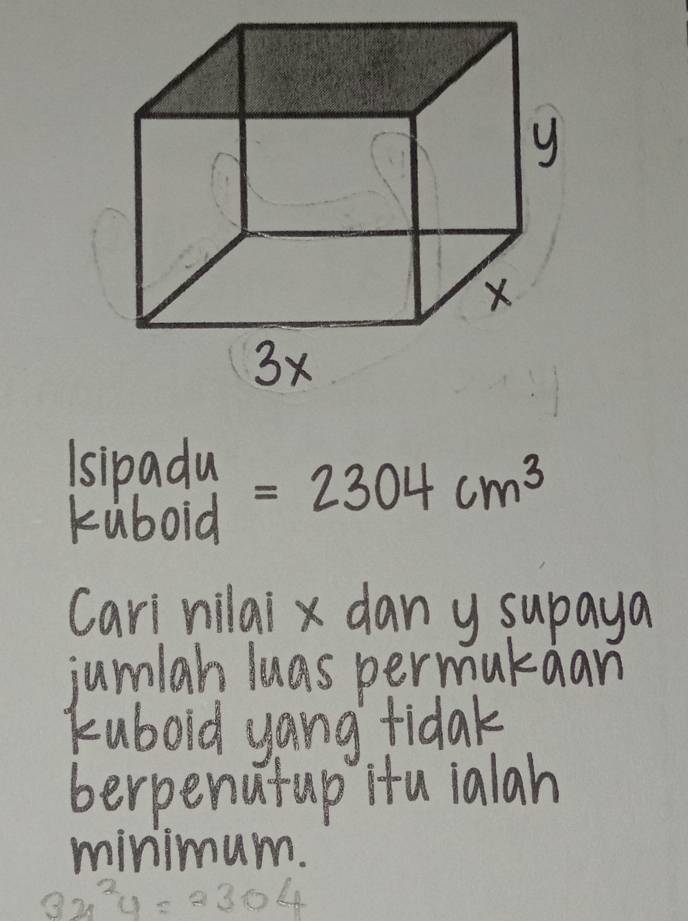 y
x
3x
Isipadu
kuboid = 2304 cm³
Cari nilai x dan y supaya
jumlah luas permukaan
kuboid yang tidak
berpenutup itu ialah
minimum.
3x²y = 2304